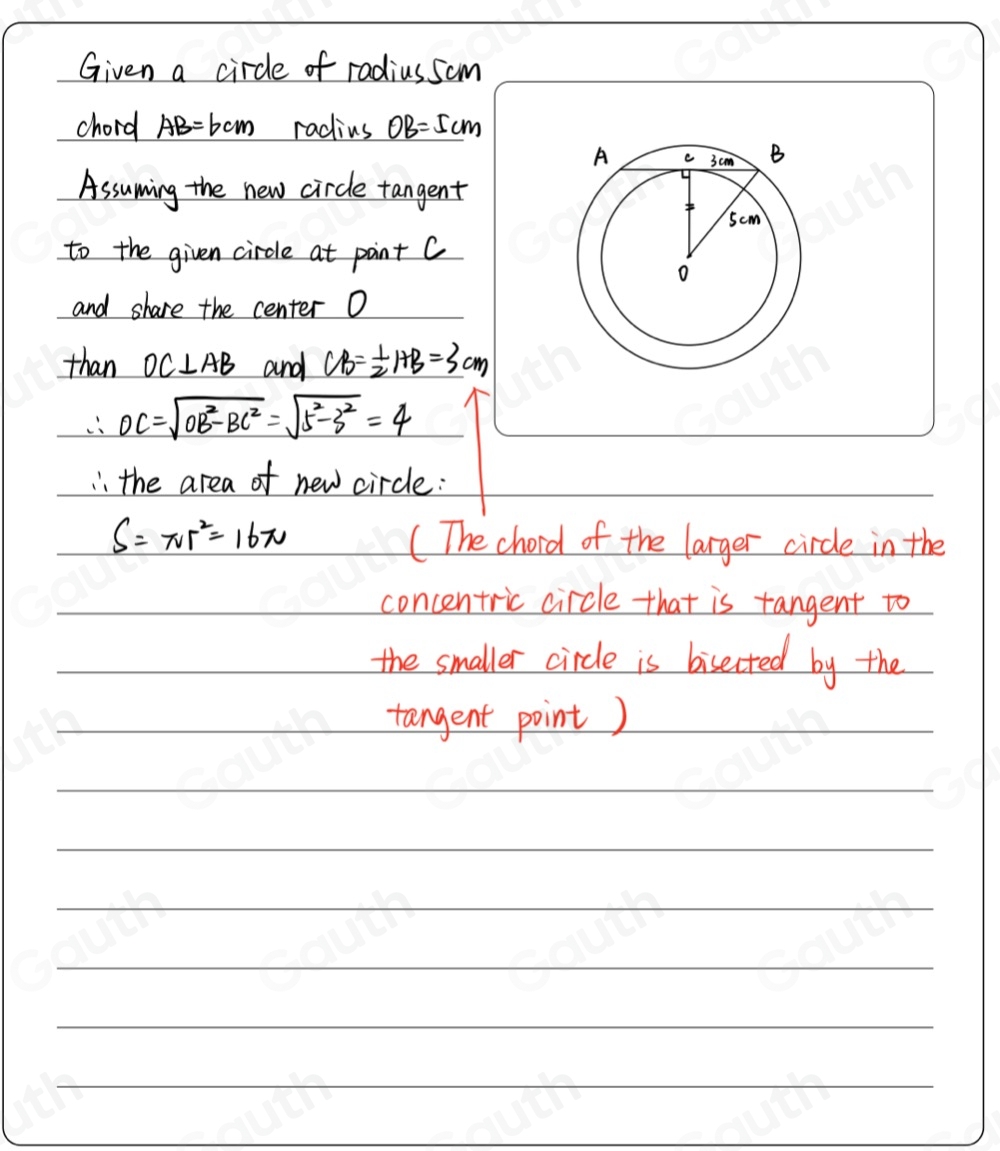 Given a circle of radius 5cm
chord AB=6cm radius OB=5cm
Assuming the new circle tangent
to the given circle at point C
and share the center O
than OC⊥AB and CB=½AB=3cm
∴ OC=√(OB²-BC²)=√(5²-3²)=4
∴ the area of new circle:
S=πr²=16π
(The chord of the larger circle in the
concentric circle that is tangent to
the smaller circle is bisected by the
tangent point)
A C 3cm B
5cm
O
Gauth